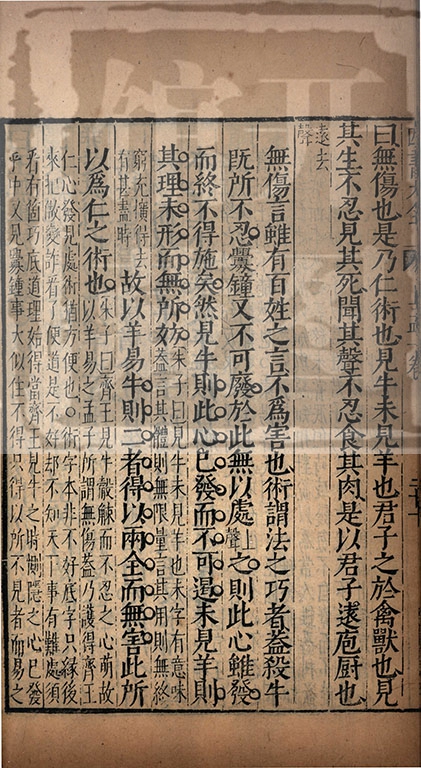 曰無傷也是乃仁術也見牛未見羊也君子之於禽獸也見
其生不忍見其死聞其聲不忍食其肉是以君子遠庖厨也
遠去
聲
無傷言雖有百姓之言不爲害也術謂法之巧者葢殺牛
既所不忍釁鐘又不可廢於此無以處上聲之則此心雖發
而終不得施矣然見牛則此心已發而不可遏未見羊則
其理未形而無所妨
朱子曰見牛未見羊也未字有意味
葢言其體則無限量言其用則無終
窮充擴得去
有甚盡時
故以羊易牛則二者得以兩全而無害此所
以爲仁之術也
朱子曰齊王見牛觳觫而不忍之心萌故
以羊易之孟子所謂無傷葢乃護得齊王
仁心發見處術猶方便也○術字本非不好底字只縁後
來把做變詐看了便道是不好却不知天下事有難處須
着有箇巧底道理始得當齊王見牛之時惻隱之心已發
乎中又見釁鍾事大似住不得只得以所不見者而易之